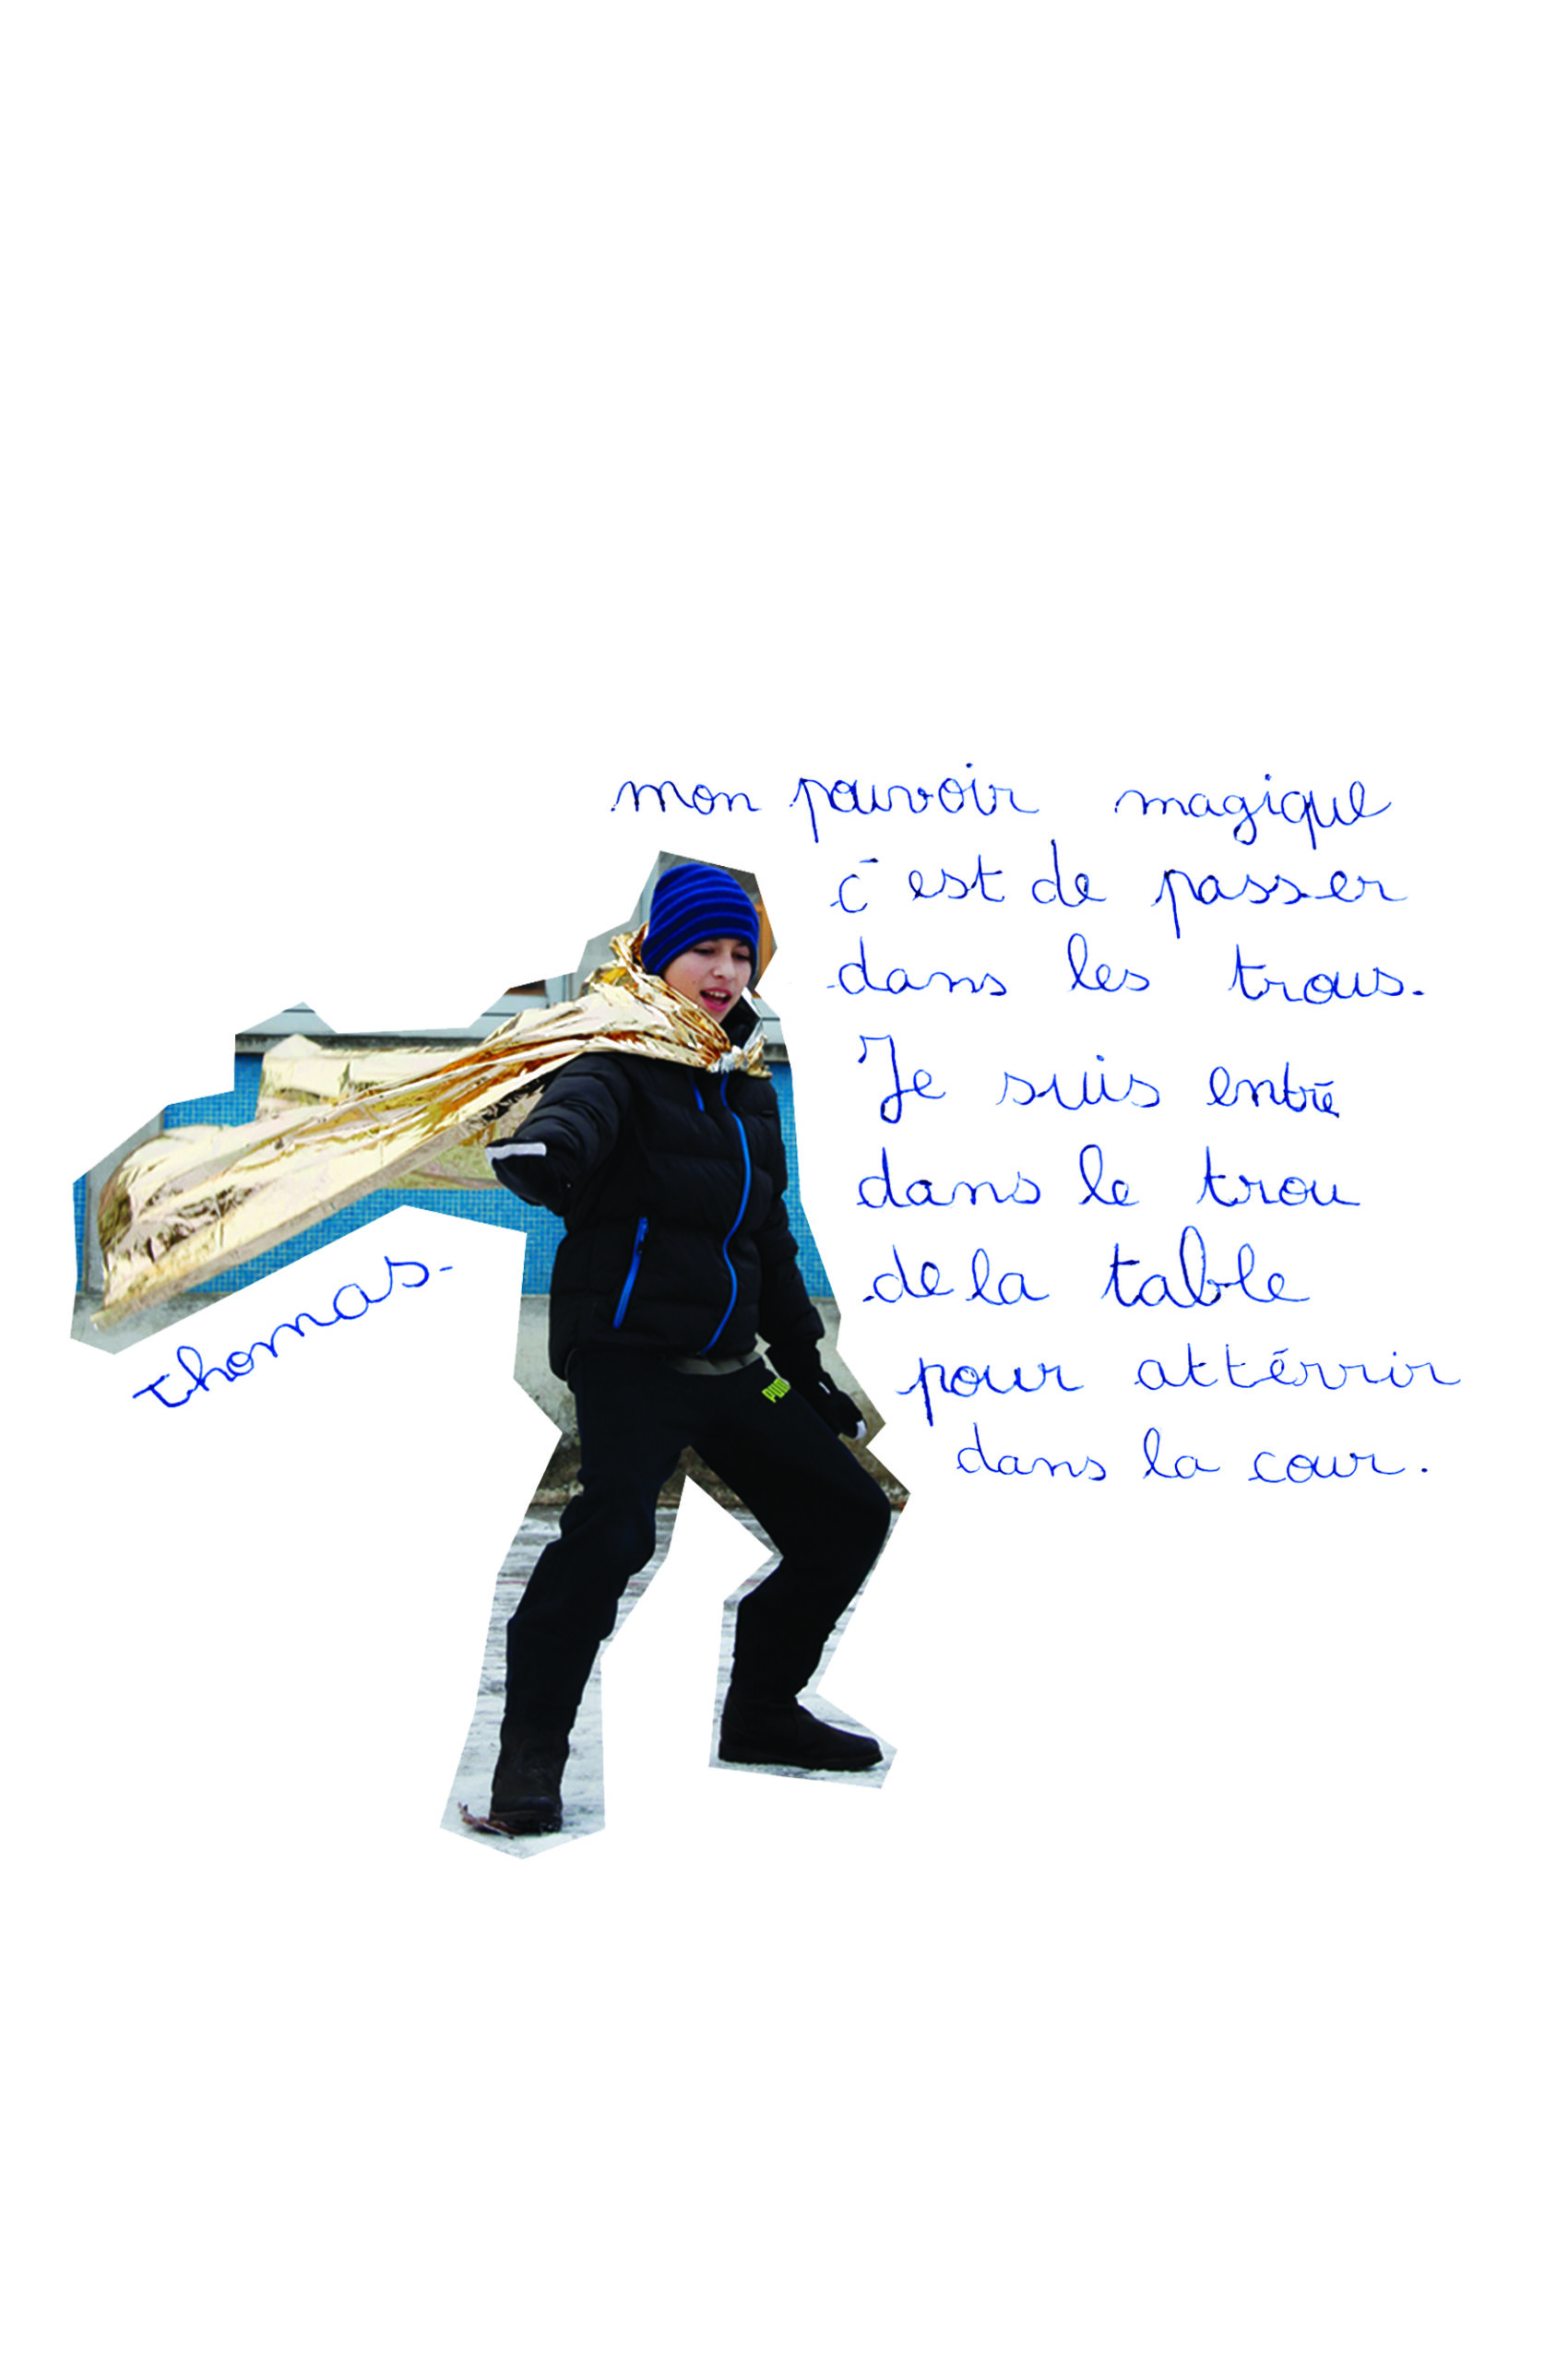 mon pouvoir magique
c'est de passer
dans les trous.
Je suis entré
dans le trou
de la table
pour attérrir
dans la cour.
Thomas.